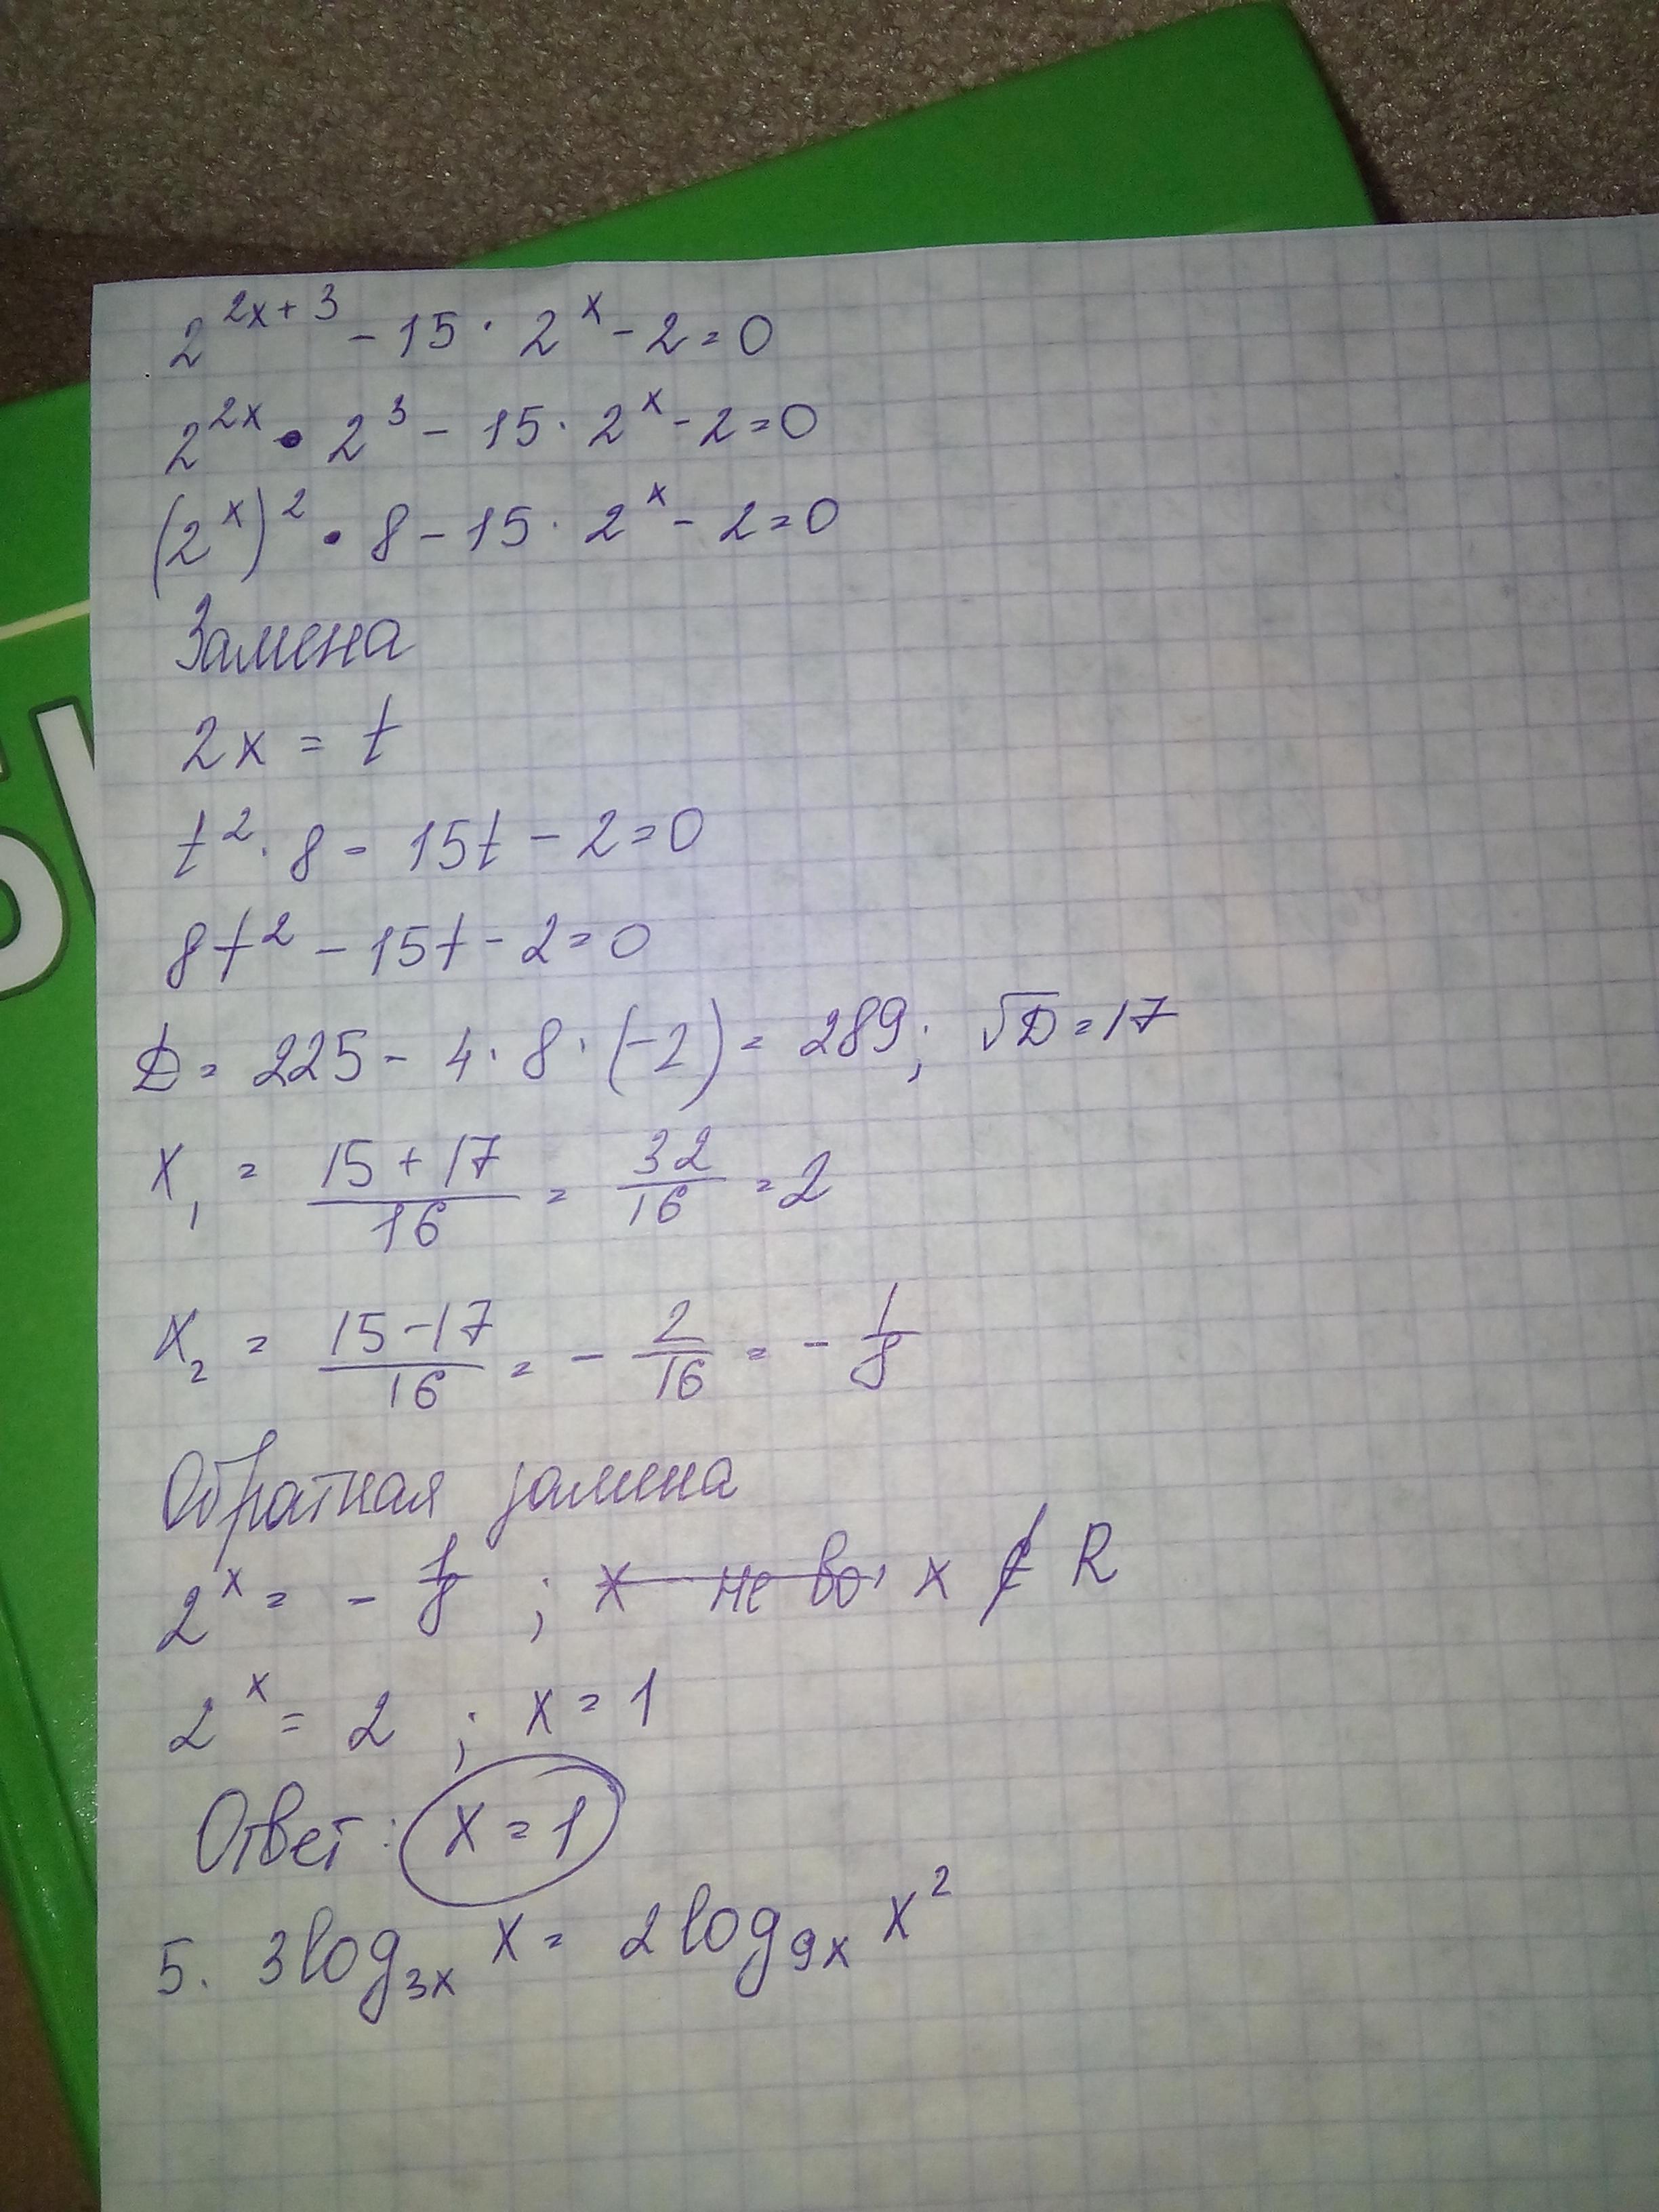 2^{2x+3} - 15 · 2^x - 2 = 0
2^{2x} · 2^3 - 15 · 2^x - 2 = 0
(2^x)^2 · 8 - 15 · 2^x - 2 = 0
Замена
2x = t
t^2 · 8 - 15t - 2 = 0
8t^2 - 15t - 2 = 0
D = 225 - 4 · 8 · (-2) = 289; √D = 17
x_1 = \frac{15+17}{16} = \frac{32}{16} = 2
x_2 = \frac{15-17}{16} = - \frac{2}{16} = - \frac{1}{8}
Обратная замена
2^x = - \frac{1}{8} ; ~~x не во~~, x ∉ R
2^x = 2 ; x = 1
Ответ: x = 1
5. 3log_{3x} x = 2log_{9x} x^2